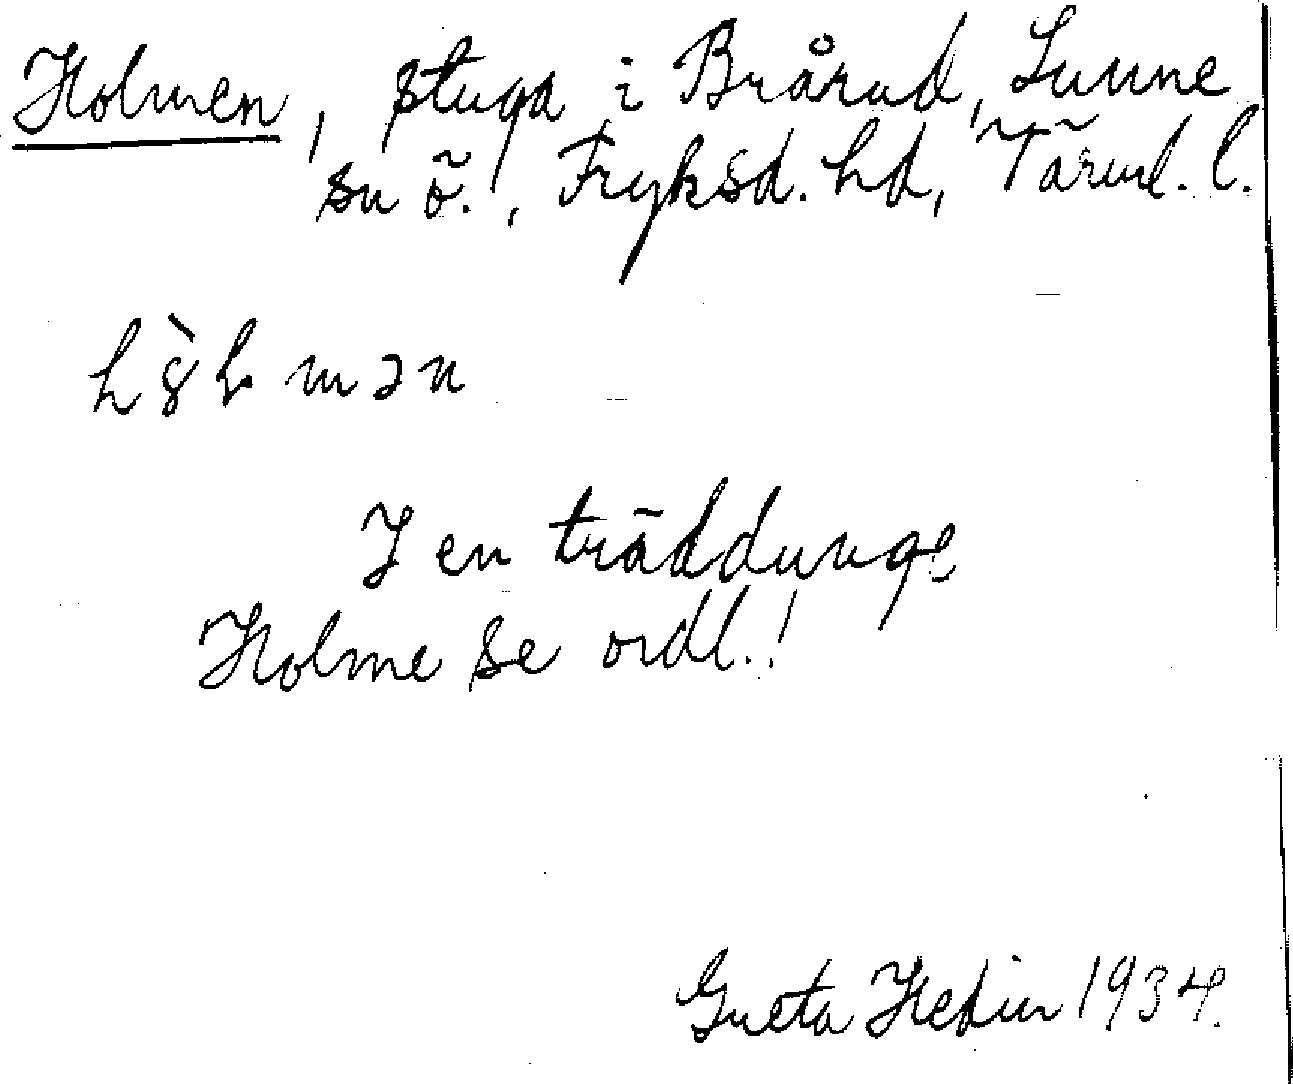 Holmen, stuga i Brårud, Sunne
sn ö., Fryksd. hd, Värml. l.
I en träddunge
Holme se ordl.!
Greta Hedin 1934.